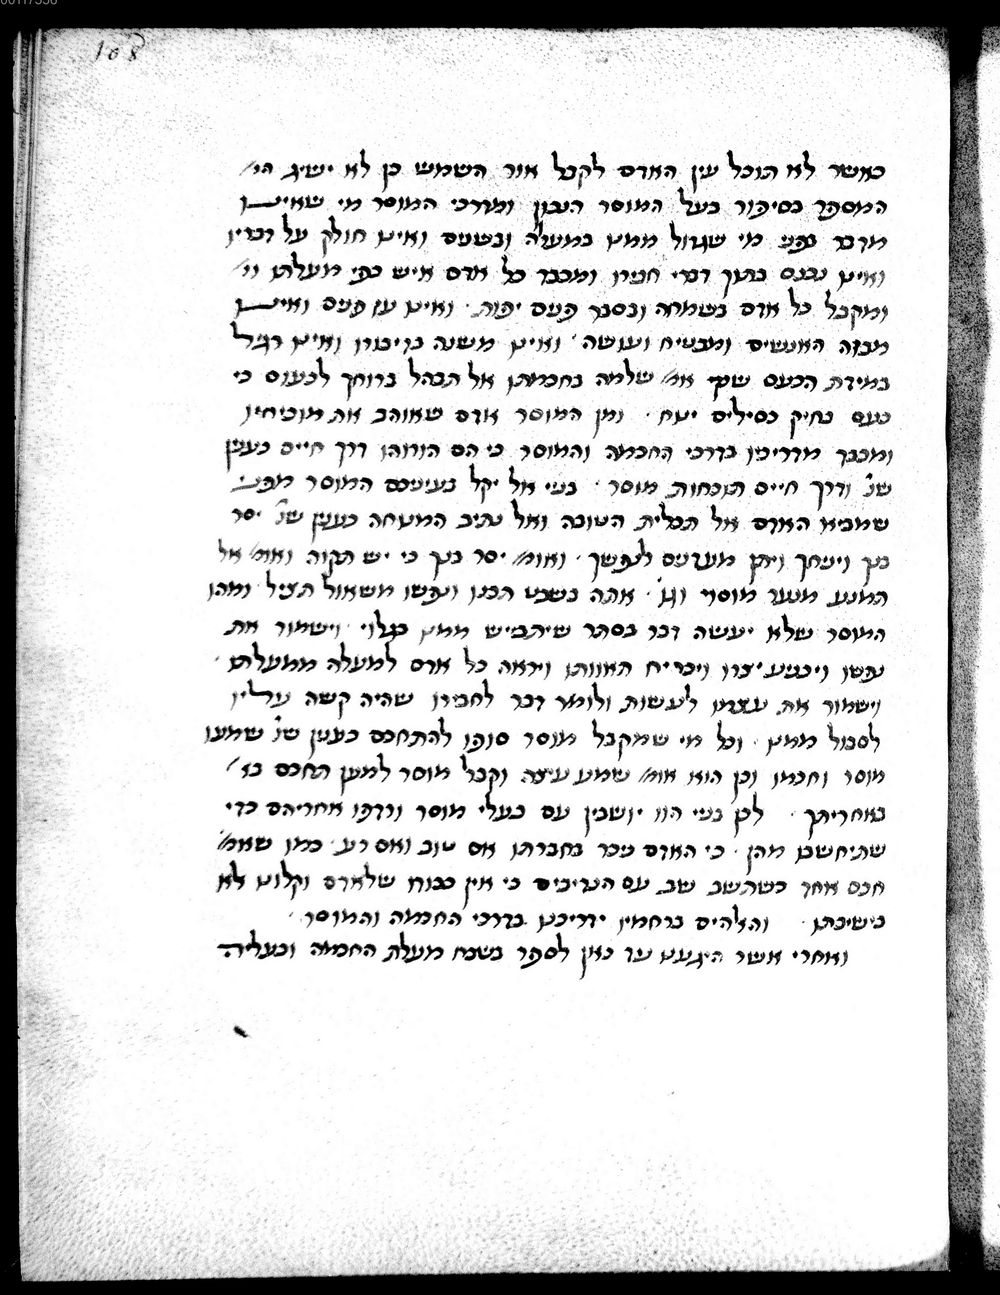 108
כאשר לא תוכל עין האדם לקבל אור השמש כן לא ישיג הי׳
המספר בסיפור בעל המוסר הנכון ומדרכי המוסר מי שאינו
מדבר בפני מי שגדול ממנו במעלה ובשנים ואינו חולק על דבריו
ואינו נכנס בתוך דברי חבירו ומכבד כל אדם איש כפי מעלתו
ומקבל כל אדם בשמחה ובסבר פנים יפות · ואינו עז פנים ואינו
מבזה האנשים ומבטיח ועושה · ואינו משנה בדיבורו ואינו רגיל
במידת הכעס שכן אמ׳ שלמה בחכמתו אל תבהל ברוחך לכעוס כי
כעס בחיק כסילים ינוח · ומן המוסר אדם שאוהב את מוכיחיו
ומכבד מדריכיו בדרכי החכמה והמוסר כי הם הורוהו דרך חיים כענין
שנ׳ ודרך חיים תוכחות מוסר · בני אל יקל בעיניכם המוסר מפני
שמביא האדם אל תכלית הטובה ואל נתיב המנוחה כענין שנ׳ יסר
בנך ויניחך ויתן מעדנים לנפשך · ואומ׳ יסר בנך כי יש תקוה ואומ׳ אל
תמנע מנער מוסר וגו׳ · אתה בשבט תכנו ונפשו משאול תציל ומהו
המוסר שלא יעשה דבר בסתר שיתבייש ממנו בגלוי וישמור את
נפשו ויכניע יצרו ויכריח תאוותו ויראה כל אדם למעלה ממעלתו ·
וישמור את עצמו לעשות ולומר דבר לחבירו שהיה קשה עליו
לסבול ממנו · וכל מי שמקבל מוסר סופו להתחכם כענין שנ׳ שמעו
מוסר וחכמו וכן הוא אומ׳ שמע עיצה וקבל מוסר למען תחכם
באחריתך · לכן בניי הוו יושבין עם בעלי מוסר ורדפו אחריהם כדי
שתיחשבו מהן · כי האדם ניכר בחברתו אם טוב ואם רע · כמו שאמ׳
חכם אחד כשתשב שב עם הנדיבים כי אין כבוד שלאדם וקלונו אלא
בישיבתו · והאלהים ברחמיו ידריכנו בדרכי החכמה והמוסר ·
ואחרי אשר היגענו עד כאן לספר בשבח מעלת החכמה ובעליה